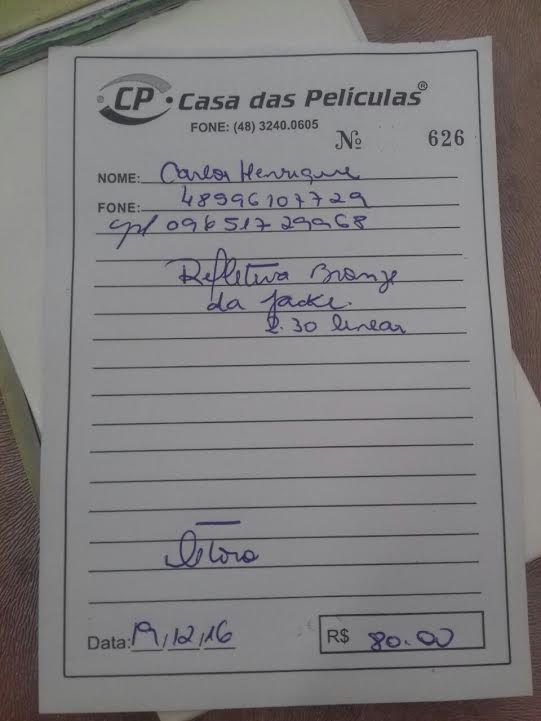 CP • Casa das Películas®
FONE: (48) 3240.0605
Nº 626
NOME: Carlos Henrique
FONE: 48996107729
cpf 096 517 299 68
Refletiva Bronze
da Jacke.
2.30 linear
Data: 19/12/16
R$ 80.00